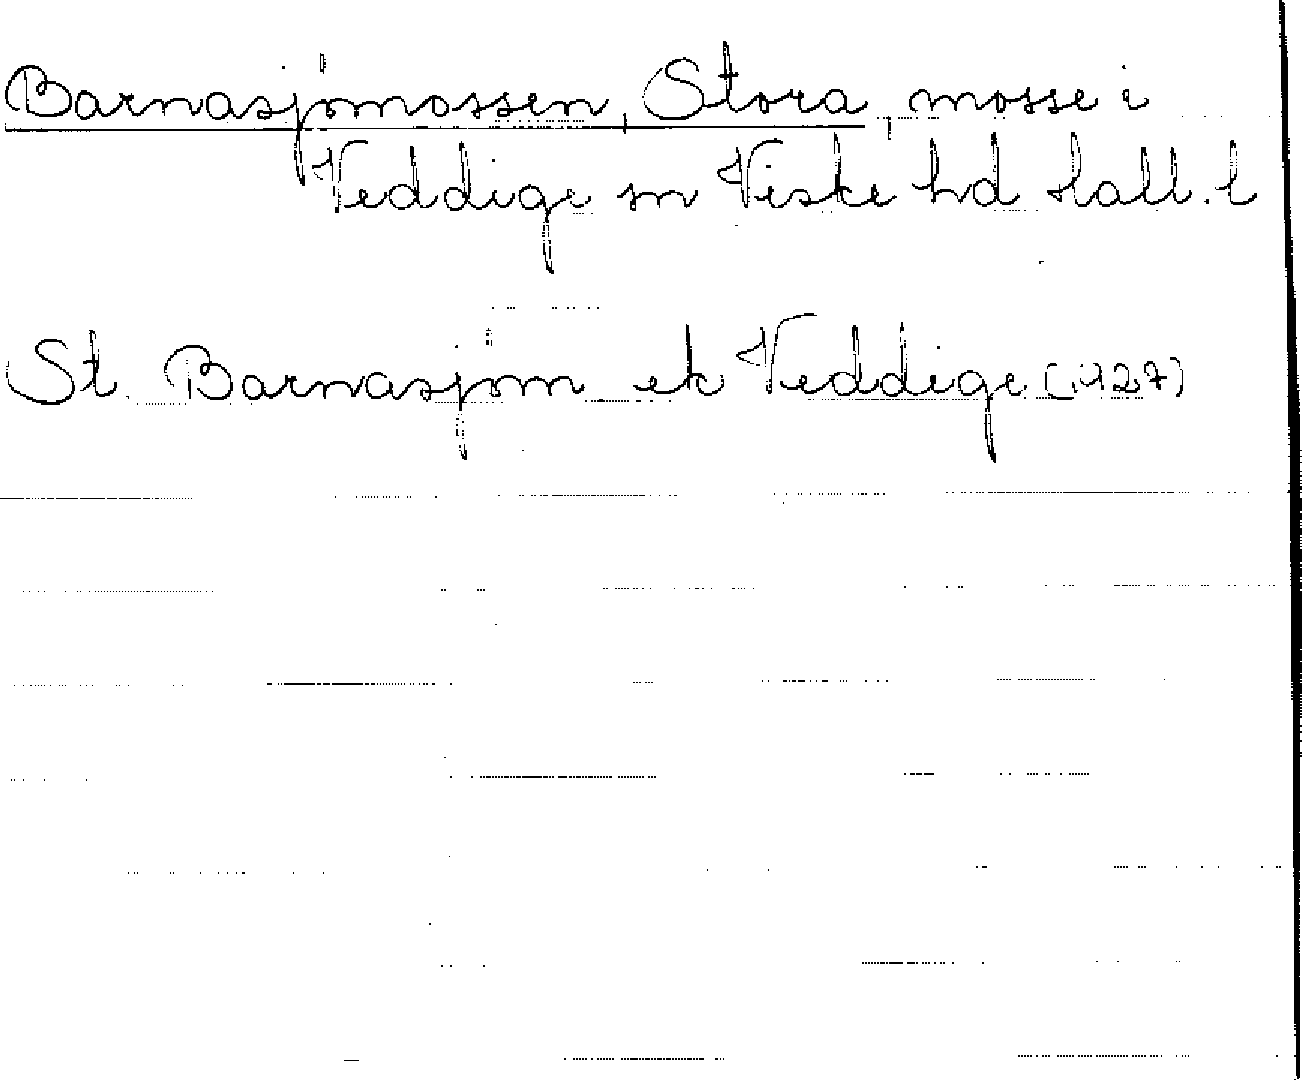 Barnasjömossen, Stora, mosse i
Veddige sn Viske hd Hall. l
St. Barnasjöm ek Veddige (1927)